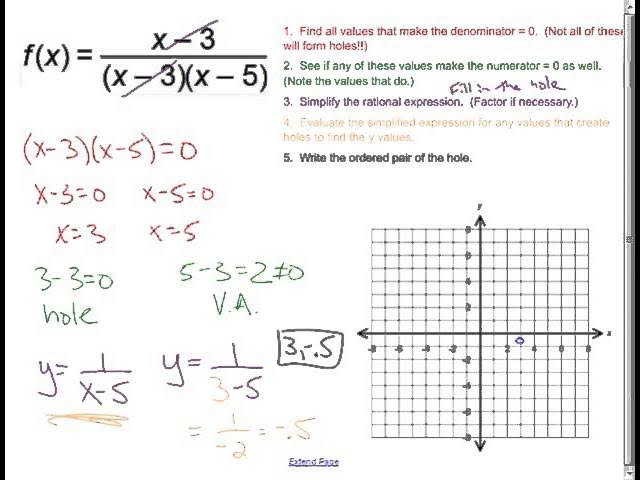 f(x) = x – 3
(x – 3)(x – 5)
1. Find all values that make the denominator = 0. (Not all of these
will form holes!!)
2. See if any of these values make the numerator = 0 as well.
(Note the values that do.)
Fill in the hole
3. Simplify the rational expression. (Factor if necessary.)
4. Evaluate the simplified expression for any values that create
holes to find the y values.
5. Write the ordered pair of the hole.
(x-3)(x-5)=0
x-3=0 x-5=0
x=3 x=5
3-3=0 5-3=2≠0
hole V.A.
y= 1/(x-5) y= 1/(3-5) 3,-.5
= 1/-2 = -.5
y
8
6
4
2
-8 -6 -4 -2 2 4 6 8 x
-2
-4
-6
-8
Extend Page